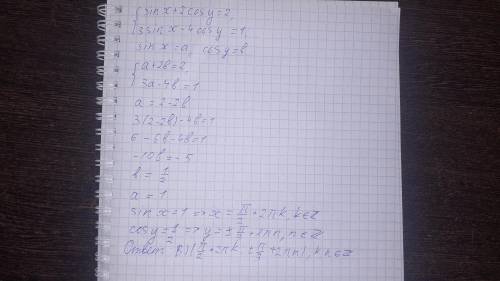 { sin x + 2 cos y = 2,
3 sin x - 4 cos y = 1,
sin x = a, cos y = b
{ a + 2b = 2,
3a - 4b = 1
a = 2 - 2b
3(2 - 2b) - 4b = 1
6 - 6b - 4b = 1
-10b = -5
b = 1/2
a = 1
sin x = 1 => x = π/2 + 2πk, k∈Z
cos y = 1/2 => y = ± π/3 + 2πn, n∈Z
Ответ: (π/2 + 2πk, ± π/3 + 2πn), k, n∈Z